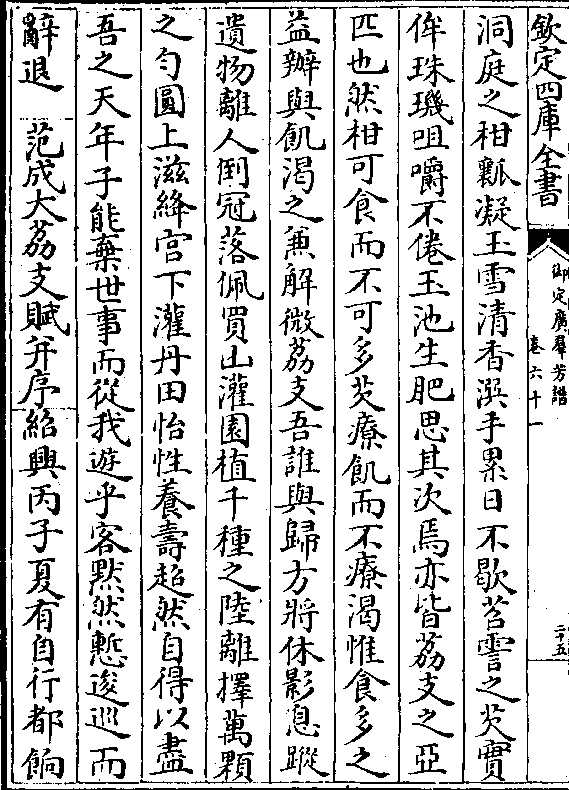 欽定四庫全書
御定廣羣芳譜
卷六十一
二十五
洞庭之柑瓤凝玉雪清香潠手累日不歇苕霅之芡實
侔珠璣咀嚼不倦玉池生肥思其次焉亦皆荔支之亞
匹也然柑可食而不可多芡療飢而不療渴惟食多之
益辦與飢渴之兼解微荔支吾誰與歸方將休影息蹤
遺物離人倒冠落佩買山灌園植千種之陸離擇萬顆
之勻圓上滋絳宫下灌丹田怡性養壽超然自得以盡
吾之天年子能棄世事而從我遊乎客黙然慙逡巡而
辭退　范成大荔支賦并序紹興丙子夏有自行都餉